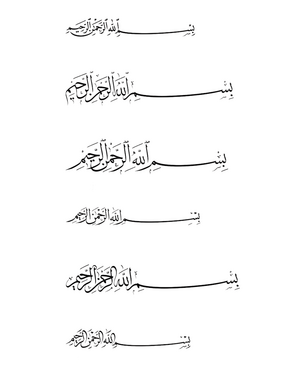 بِسْمِ اللهِ الرَّحْمٰنِ الرَّحِيمِ
بِسْمِ اللهِ الرَّحْمٰنِ الرَّحِيمِ
بِسْمِ اللهِ الرَّحْمٰنِ الرَّحِيمِ
بِسْمِ اللهِ الرَّحْمٰنِ الرَّحِيمِ
بِسْمِ اللهِ الرَّحْمٰنِ الرَّحِيمِ
بِسْمِ اللهِ الرَّحْمٰنِ الرَّحِيمِ